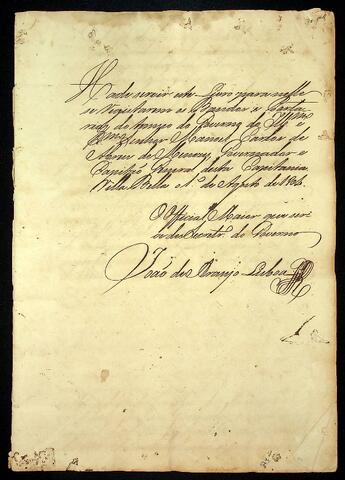 Hade servir este Livro para nelle
se registarem os Bandos e Porta-
rias do tempo do Governo do Ill.mo e
Ex.mo Senhor Manoel Carlos de
Abreu de Menezes Governador e
Capitão General desta Capitania
Villa Bella 1.º de Agosto de
O Official Maior que serve
de Secretr.º do Governo
João de Araujo Lisboa